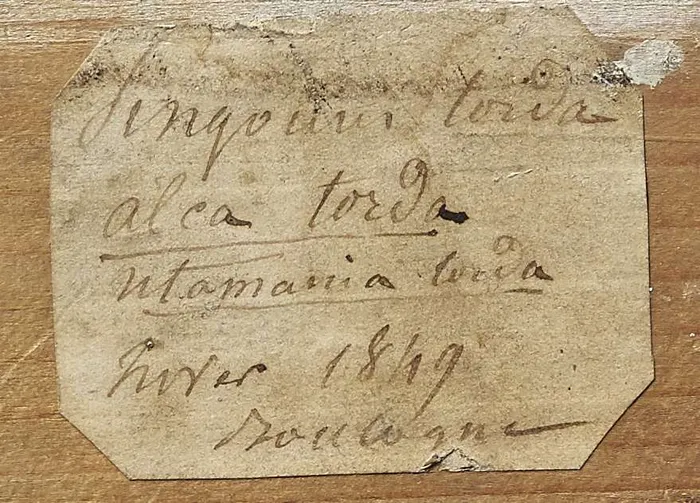 Pingouin torda
alca torda
utamania torda
hiver 1849
Boulogne